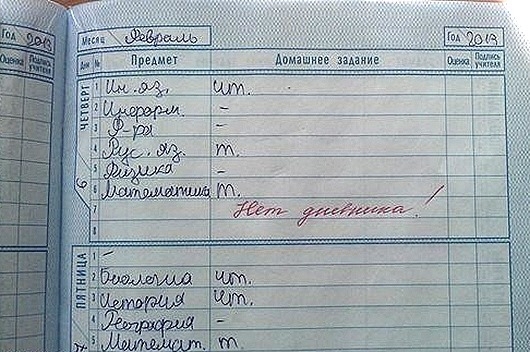 Год 2013
Месяц Февраль
Год 2013
Оценка Подпись учителя
Дни № Предмет Домашнее задание Оценка Подпись учителя
ЧЕТВЕРГ 6
1 Ин. яз. чт.
2 Информ. -
3 Ф-ра -
4 Рус. яз. т.
5 Физика -
6 Математика т.
7 Нет дневника!
8
ПЯТНИЦА
1 -
2 Биология чт.
3 История чт.
4 География -
5 Математ. т.